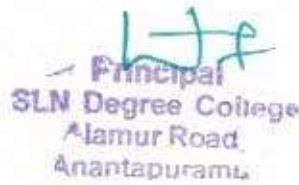 Principal
SLN Degree College
Alamur Road
Anantapuramu